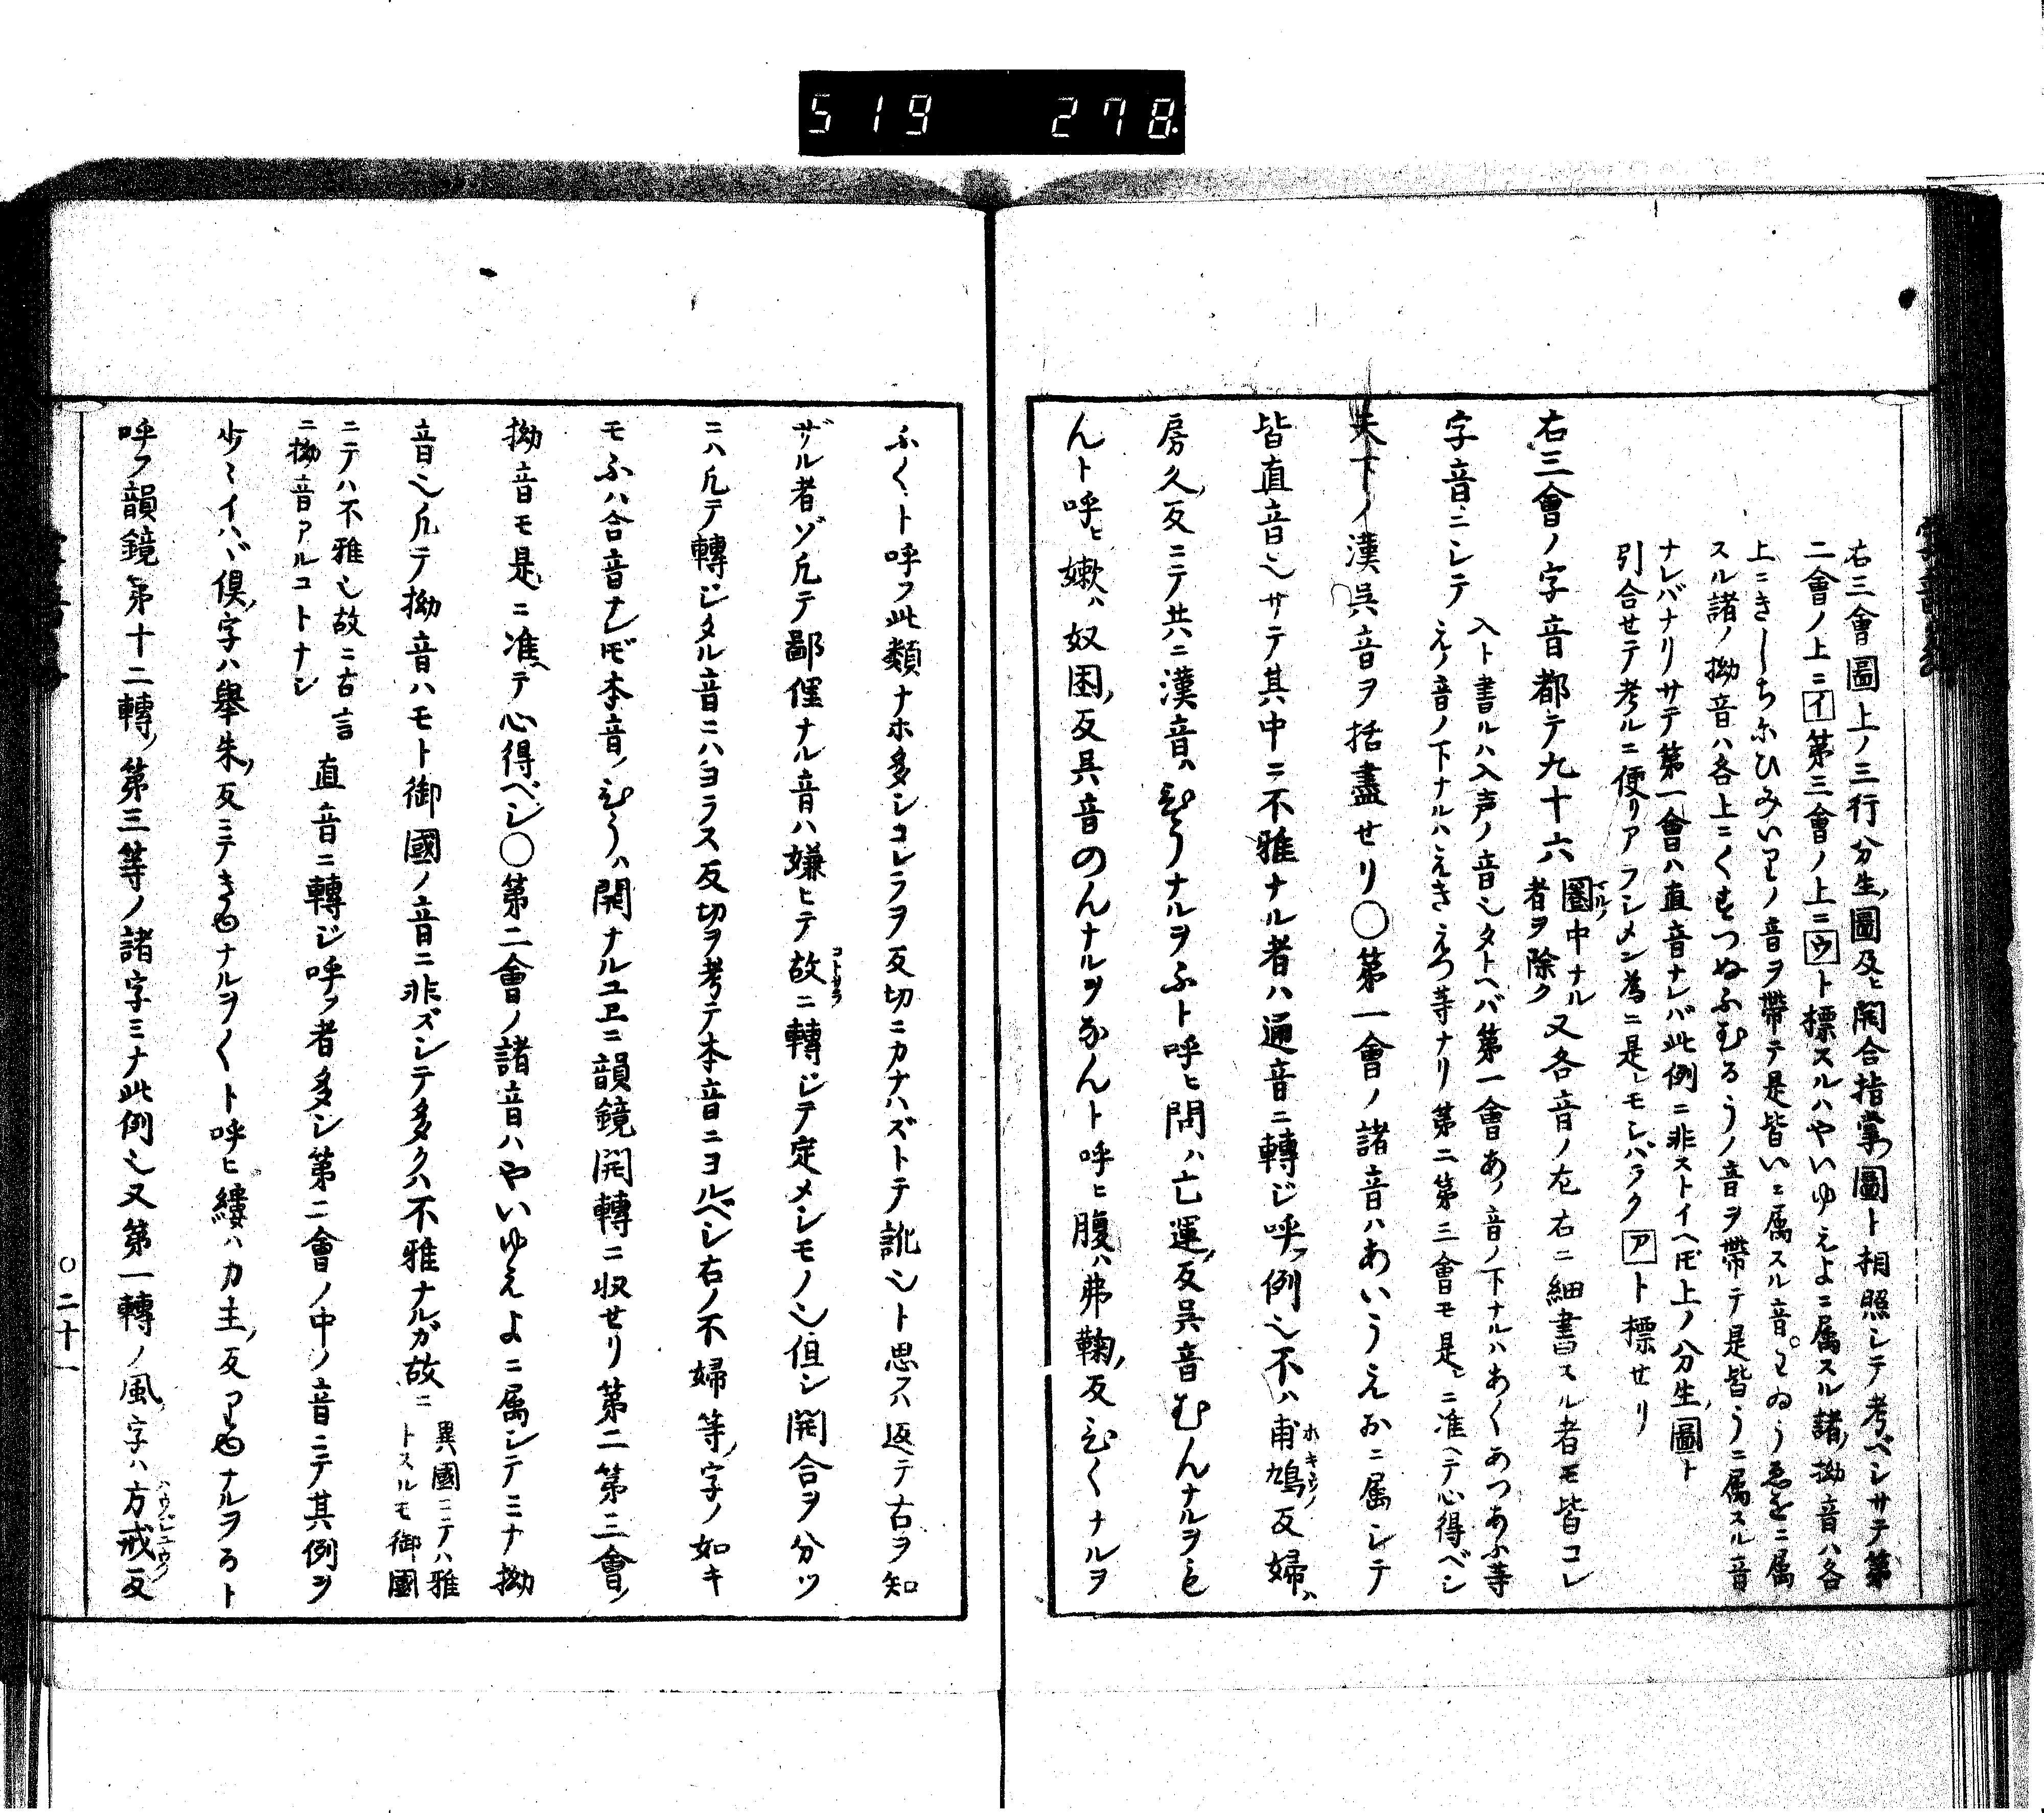 519 278
右三會圖上ノ三行分生圖及ヒ開合指掌圖ト相照シテ考ベシサテ第
二會ノ上ニイ第三會ノ上ニウト標スルハやいゆえよニ属スル諸拗音ハ各
上ニきしちにひみいりノ音ヲ帶テ是皆いニ属スル音わゐうゑをニ属
スル諸ノ拗音ハ各上ニくすつぬふむるうノ音ヲ帶テ是皆うニ属スル音
ナレバナリサテ第一會ハ直音ナレバ此例ニ非ストイヘ𪜈上ノ分生圖ト
引合せテ考ルニ便リアラシメン為ニ是レモシバラクアト標せリ
右三會ノ字音都テ九十六圏中ナル
者ヲ除ク又各音ノ左右ニ細書スル者モ皆コレ
字音ニシテ入ト書ルハ入声ノ音也タトヘバ第一會あノ音ノ下ナルハあくあつあふ等
えノ音ノ下ナルハえきえつ等ナリ第二第三會モ是レニ准ヘテ心得ベシ
天下ノ漢呉音ヲ括盡せリ○第一會ノ諸音ハあいうえおニ属シテ
皆直音也サテ其中ニ不雅ナル者ハ通音ニ轉ジ呼フ例也不ハ甫鳩ホキウノ反婦ハ
房久反ニテ共ニ漢音ハひうナルヲふト呼ヒ問ハ亡運反呉音むんナルヲも
んト呼ヒ嫩ハ奴困反呉音のんナルヲなんト呼ヒ腹ハ弗鞠反ひくナルヲ
ふくト呼フ此類ナホ多シコレラヲ反切ニカナハズトテ訛也ト思フハ返テ古ヲ知
ザル者ゾ凡テ鄙俚ナル音ハ嫌ヒテ故コトサラニ轉ジテ定メシモノ也但シ開合ヲ分ツ
ニハ凡テ轉ジタル音ニハヨラス反切ヲ考テ本音ニヨルベシ右ノ不婦等ノ字ノ如キ
モふハ合音ナレ𪜈本音ノひうハ開ナルユヱニ韻鏡開轉ニ収せリ第二第三會ノ
拗音モ是レニ准ヘテ心得ベシ○第二會ノ諸音ハやいゆえよニ属シテミナ拗
音也凡テ拗音ハモト御國ノ音ニ非ズシテ多クハ不雅ナルガ故ニ異國ニテハ雅
トスルモ御國
ニテハ不雅也故ニ古言
ニ拗音アルコトナシ直音ニ轉ジ呼フ者多シ第二會ノ中ノ音ニテ其例ヲ
少々イハヾ俱字ハ舉朱反ニテきゆナルヲくト呼ヒ縷ハ力主反りゆナルヲるト
呼フ韻鏡第十二轉ノ第三等ノ諸字ミナ此例也又第一轉ノ風字ハ方戎ハウジユウノ反
○二十一